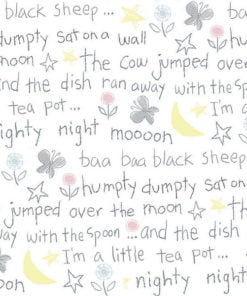 black sheep...
humpty sat on a wall
moon the cow jumped over
and the dish ran away with the spo
tea pot... I'm a
nighty night moooon
baa baa black sheep
humpty dumpty sat on
jumped over the moon the
away with the spoon ...and the dish
I'm a little tea pot...
nighty night